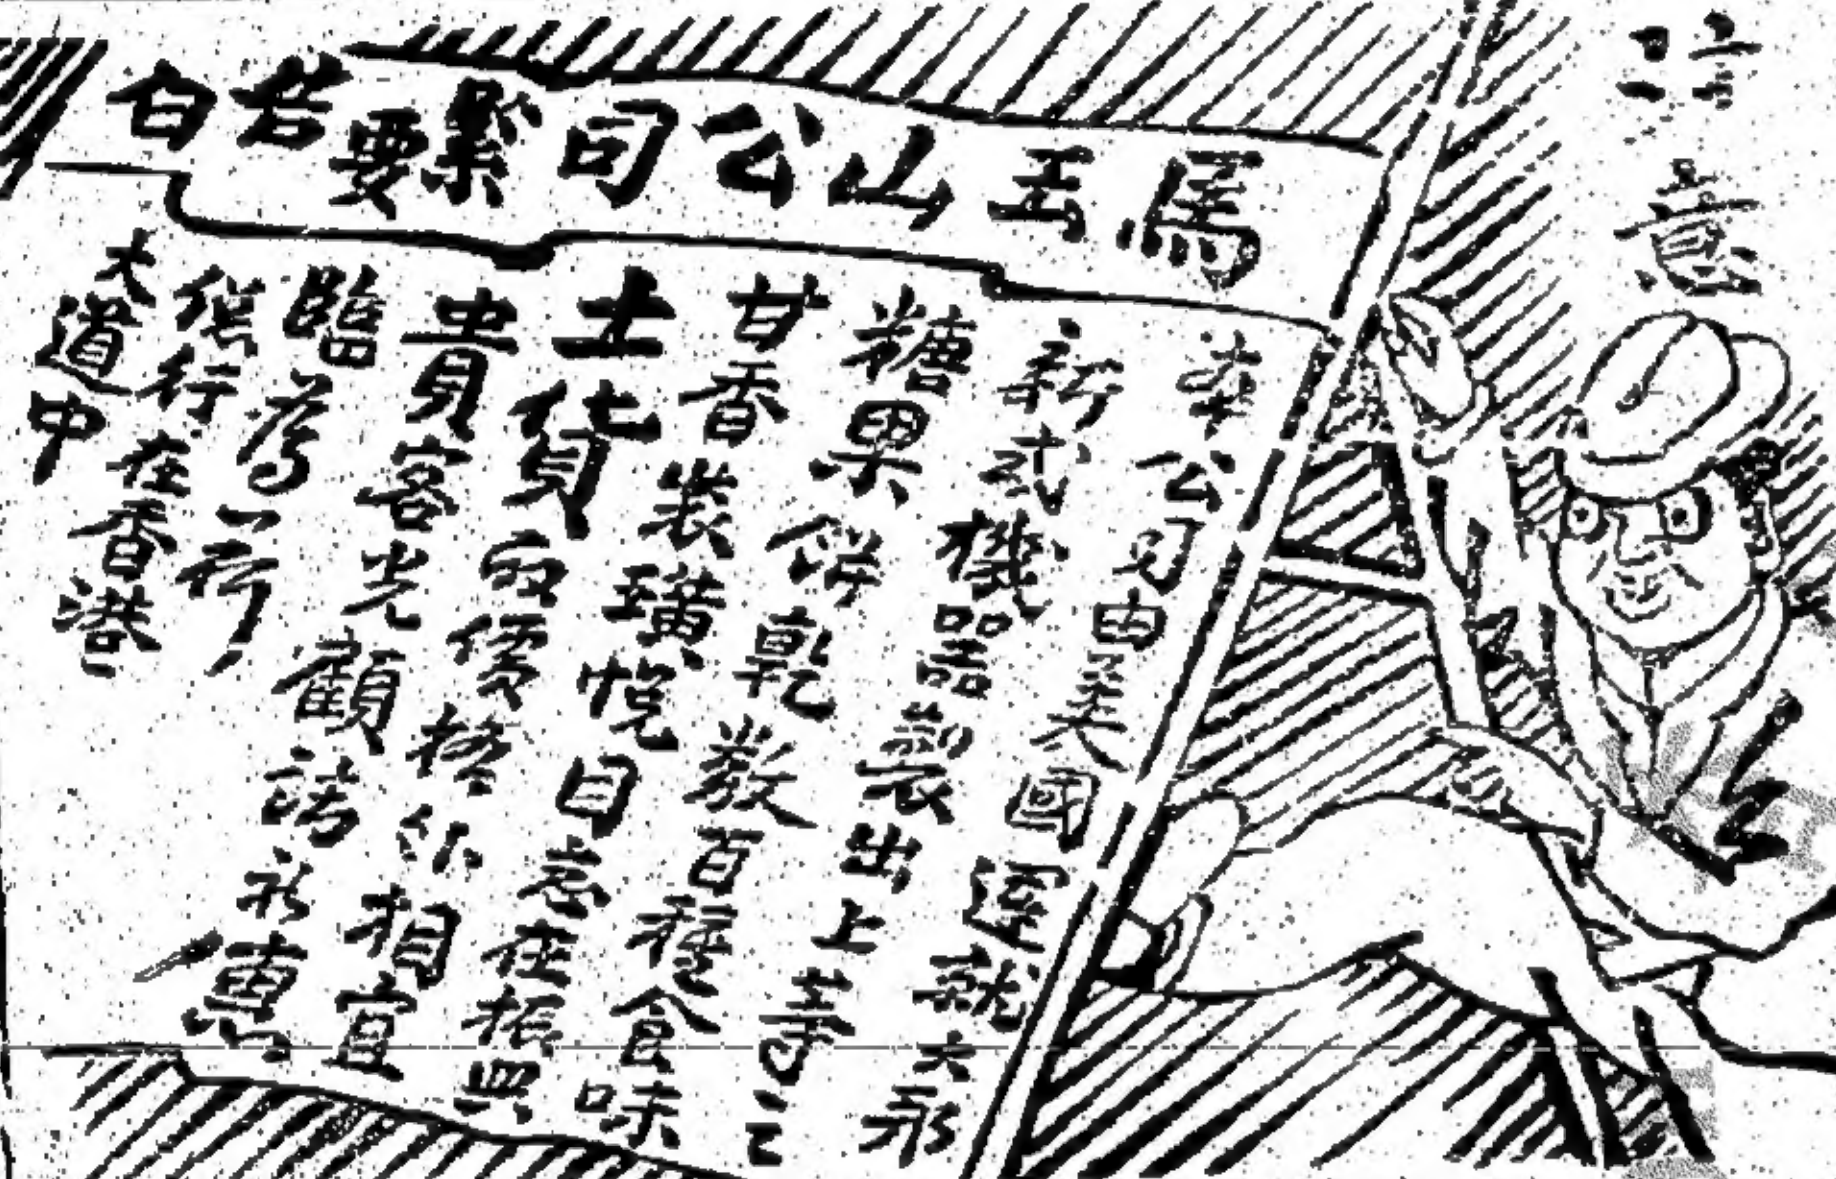 注意
馬玉山公司緊要告白
本公司由美國運就大
新式機器製出上等之
糖果餅乾數百種食味
甘香裝璜悅目意在振興
土貨取價格外相宜
貴客光顧請惠
臨為荷
總行在香港
大道中